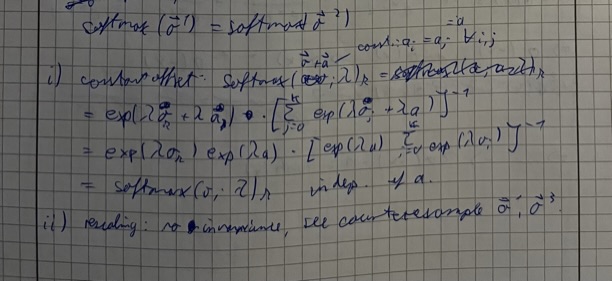 softmax (σ⃗ ¹) = softmax(σ⃗ ²)
σ⃗ + a⃗ const.: a_i = a_j =a ∀ i,j
i) constant offset: softmax( ; λ)_k =
= exp(λσ_k + λa) · [Σ_{j=0}^{K} exp(λσ_j + λa)]^{-1}
= exp(λσ_k) exp(λa) · [exp(λa) Σ_{j=0}^{K} exp(λσ_j)]^{-1}
= softmax(σ; λ)_k indep. of a.
ii) scaling: no invariance, see counterexample σ⃗ ¹, σ⃗ ³.